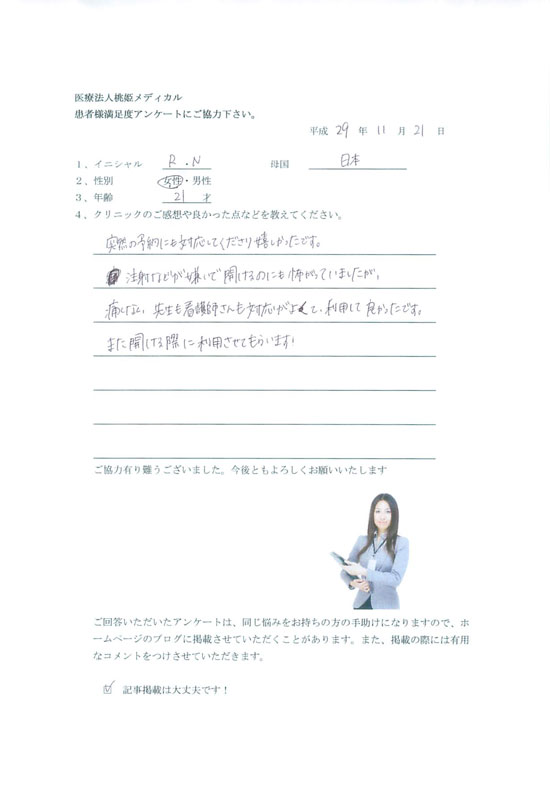 医療法人桃姫メディカル
患者様満足度アンケートにご協力下さい。
平成 29 年 11 月 21 日
1、イニシャル R.N 母国 日本
2、性別 女性・男性
3、年齢 21 才
4、クリニックのご感想や良かった点などを教えてください。
突然の予約にも対応してくださり嬉しかったです。
注射などが嫌いで開けるのにも怖がっていましたが、
痛くない、先生も看護師さんも対応がよくて、利用して良かったです。
また開ける際に利用させてもらいます!
ご協力有り難うございました。今後ともよろしくお願いいたします
ご回答いただいたアンケートは、同じ悩みをお持ちの方の手助けになりますので、ホ
ームページのブログに掲載させていただくことがあります。また、掲載の際には有用
なコメントをつけさせていただきます。
☑ 記事掲載は大丈夫です!